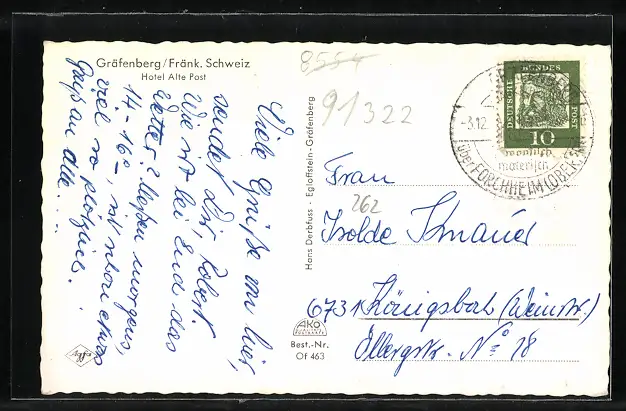 Gräfenberg/Fränk. Schweiz
Hotel Alte Post
Viele Grüße von hier,
sendet Dir, Robert.
Wie ist bei Euch das
Wetter? Messen morgens,
14-16°-, ist schon etwas
viel so plötzlich.
Gruß an alle...
Hans Derbfuss · Egloffstein-Gräfenberg
AKO
Best.-Nr.
Of 463
8554
91322
262
DEUTSCHE BUNDESPOST
10
-3.12
malerisch
über FORCHHEIM (OBERFR)
Frau
Isolde Schnauer
6731 Königsbach (Weinstr.)
Ölbergstr. No 18